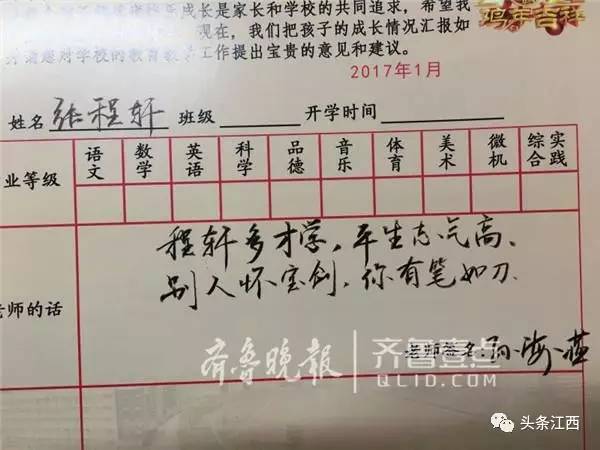 成长是家长和学校的共同追求,希望我
现在,我们把孩子的成长情况汇报如
对学校的教育教学工作提出宝贵的意见和建议。
鸡年吉祥
2017年1月
姓名 张程轩 班级 开学时间
业等级 语文 数学 英语 科学 品德 音乐 体育 美术 微机 综合实践
程轩多才学,平生志气高、
别人怀宝剑,你有笔如刀.
老师的话
老师签名:孙海燕
齐鲁晚报 齐鲁壹点
QLID.COM
头条江西